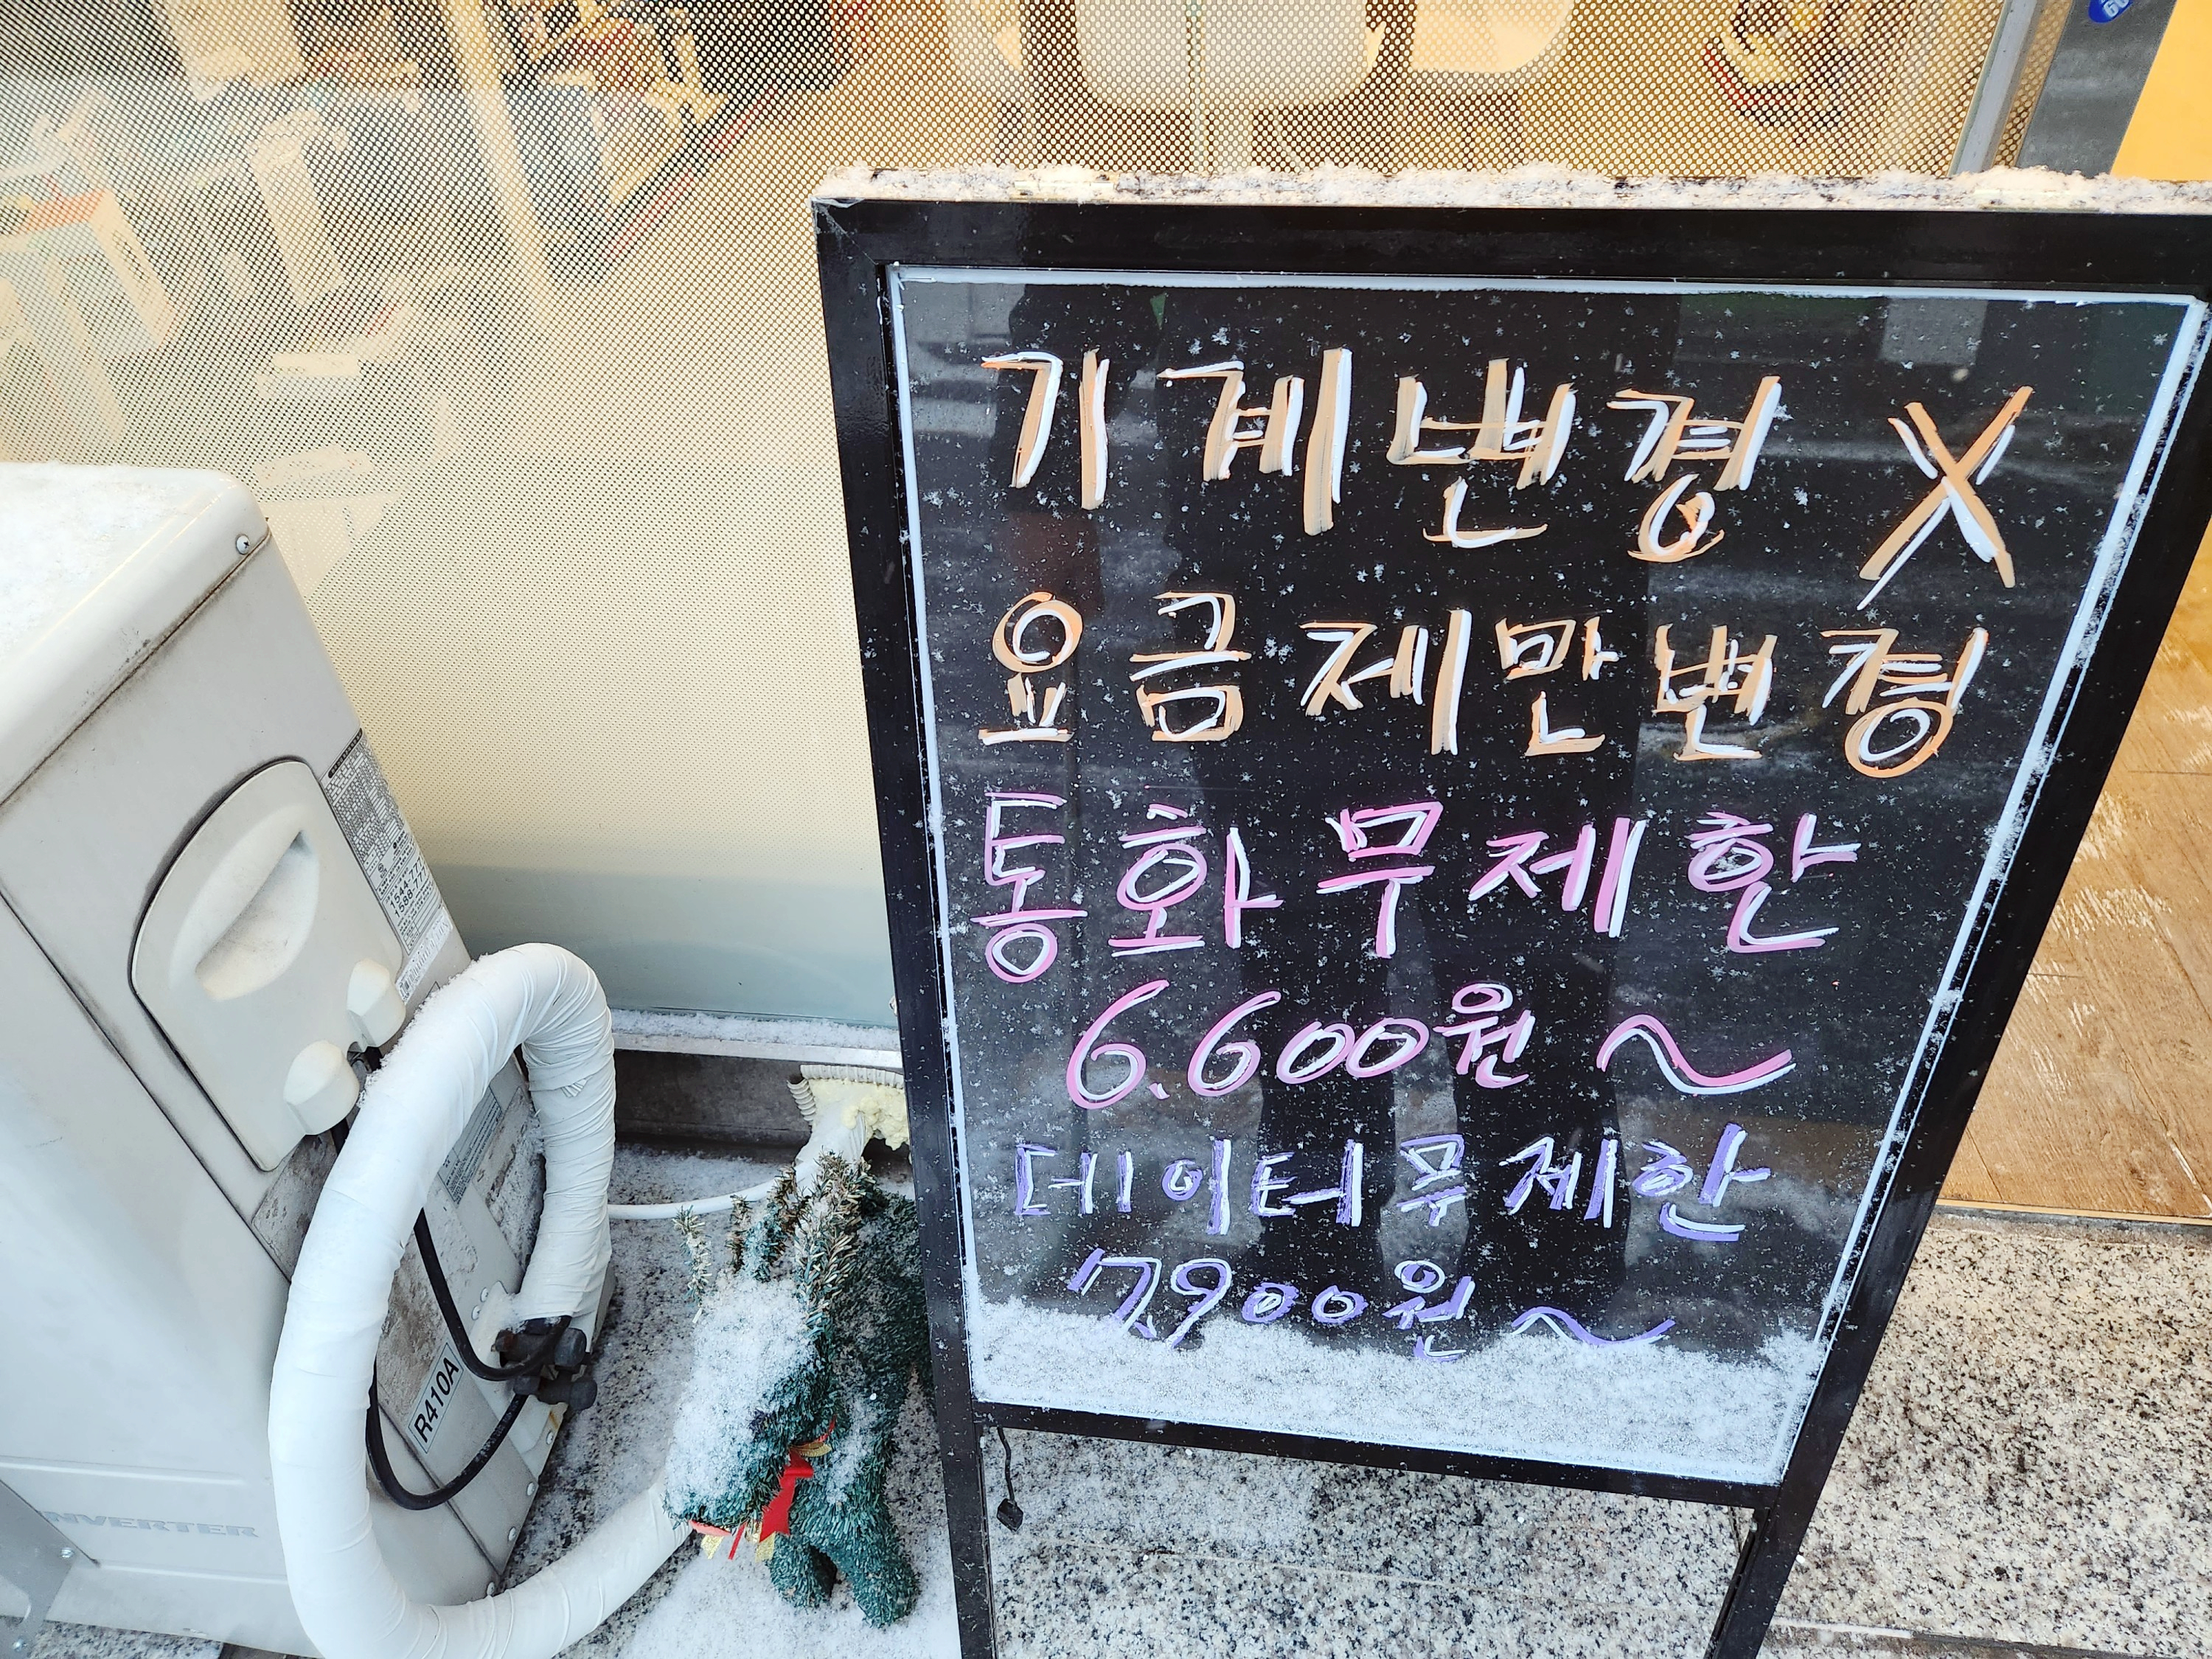 기계변경 X
요금제만변경
통화무제한
6.600원 ~
데이터무제한
7.900원 ~
R410A
INVERTER